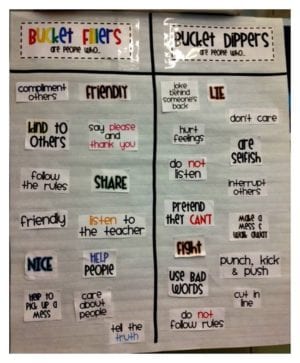 Bucket Fillers
are people who...
compliment
others
friendly
kind to
others
say please
and
thank you
follow
the rules
SHARE
friendly
listen to
the teacher
NICE
HELP
PEOPLE
help to
pick up a
mess
care
about
people
tell the
truth
Bucket Dippers
are people who...
joke
behind
someone's
back
LIE
don't care
hurt
feelings
are
selfish
do not
listen
interrupt
others
PRETEND
they CAN'T
make a
mess &
walk away
fight
punch, kick
& push
USE BAD
WORDS
cut in
line
do not
follow rules